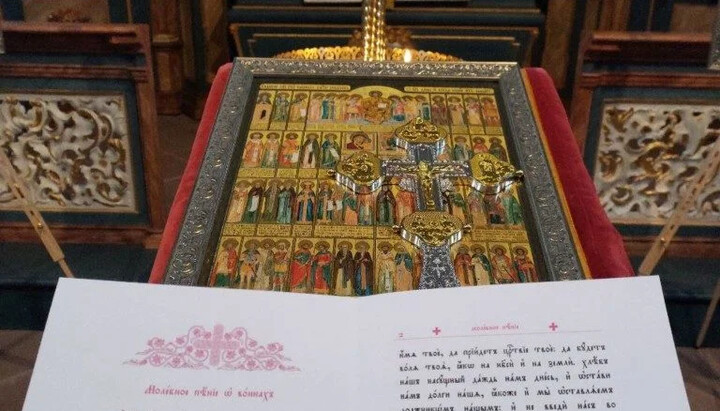 Моле́бное пѣ́нїе ѡ҆ во́инахъ
2
моле́бное пѣ́нїе
и҆́мѧ твоѐ, да прїи́детъ црⷭ҇твїе твоѐ: да бꙋ́детъ
во́лѧ твоѧ̀, ꙗ҆́кѡ на нб҃сѝ и҆ на землѝ. хлѣ́бъ
на́шъ насꙋ́щный да́ждь на́мъ дне́сь, и҆ ѡ҆ста́ви
на́мъ до́лги на́шѧ, ꙗ҆́коже и҆ мы̀ ѡ҆ставлѧ́емъ
должникѡ́мъ на́шымъ: и҆ не введѝ на́съ во